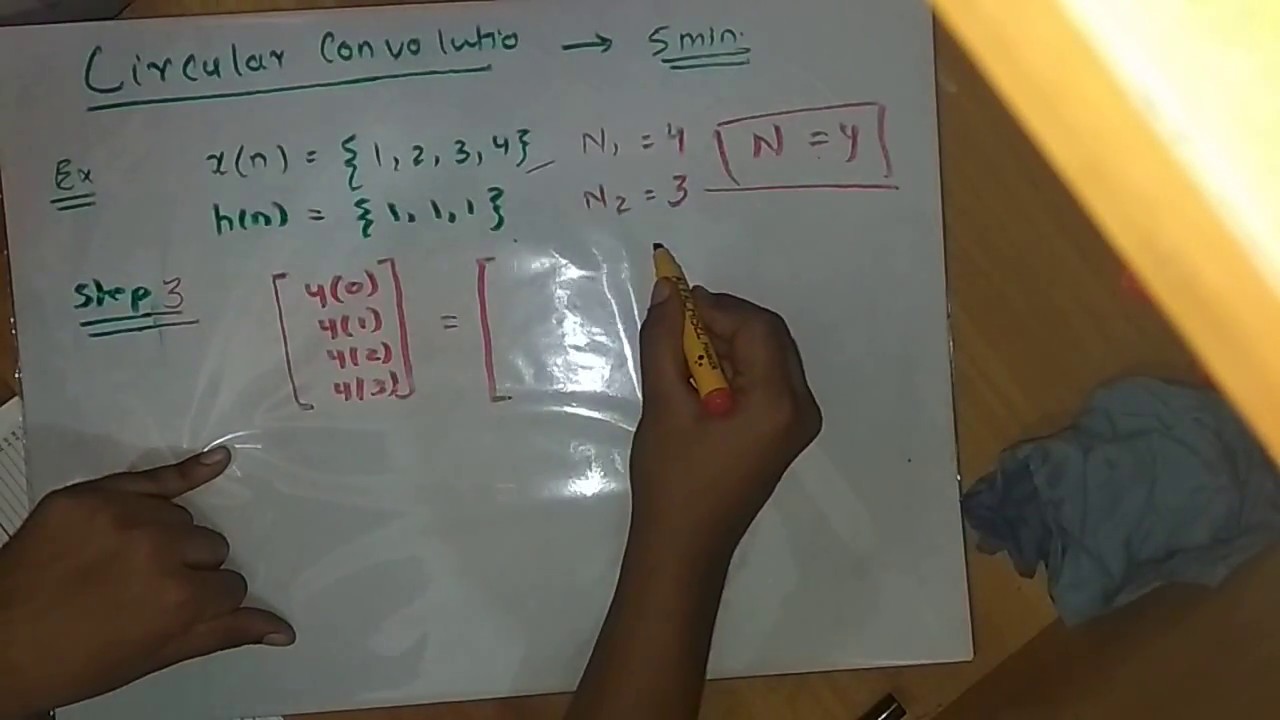 Circular Convolutio → 5min.
Ex x(n) = {1, 2, 3, 4} N1 = 4 N = 4
h(n) = {1, 1, 1} N2 = 3
Step 3 [ y(0) = [
y(1)
y(2)
y(3) ]